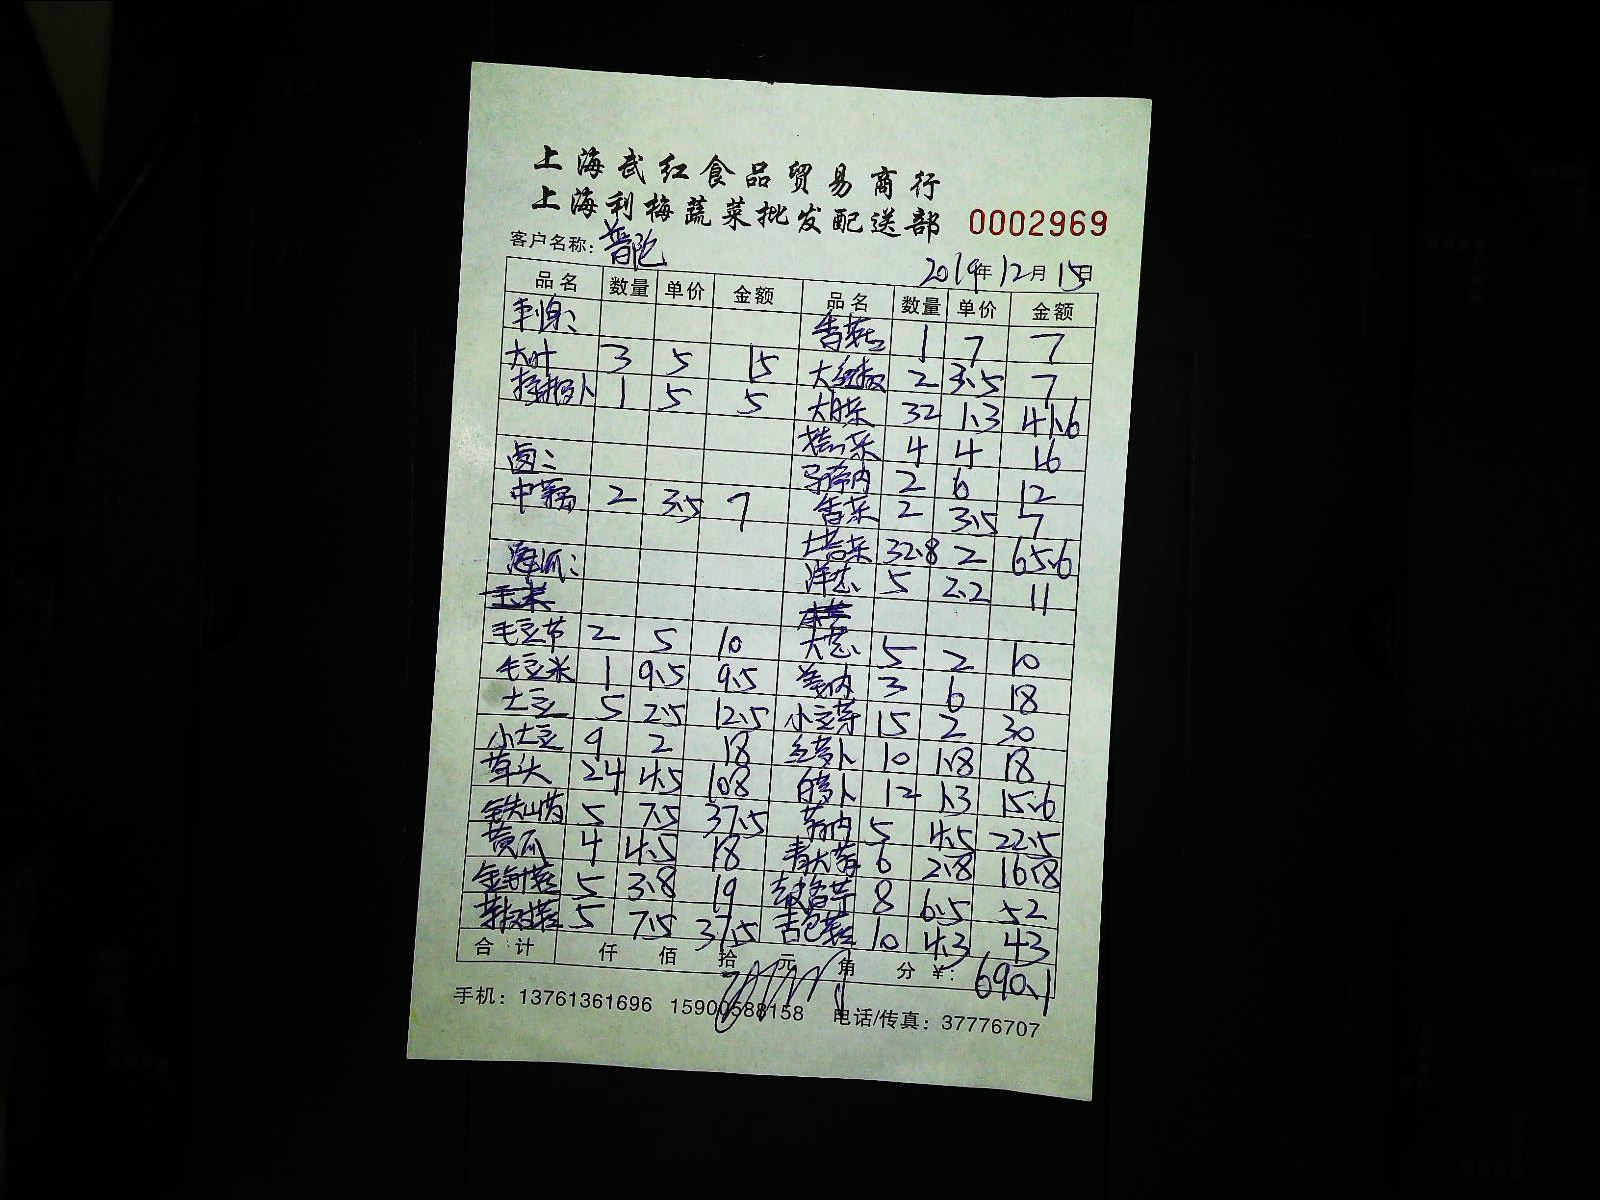 上海武红食品贸易商行
上海利梅蔬菜批发配送部 0002969
客户名称: 普陀 2019年12月15日
品名 数量 单价 金额 品名 数量 单价 金额
刺身: 香菇 1 7 7
大叶 3 5 15 大红椒 2 3.5 7
萝卜 1 5 5 大白菜 32 1.3 41.6
菜 4 4 16
卤: 马蹄肉 2 6 12
中藕 2 3.5 7 香菜 2 3.5 7
塔菜 32.8 2 65.6
洋葱 5 2.2 11
玉米
毛豆节 2 5 10 大葱 5 2 10
毛豆米 1 9.5 9.5 姜肉 3 6 18
土豆 5 2.5 12.5 小豆芽 15 2 30
小土豆 9 2 18 红萝卜 10 1.8 18
草头 24 4.5 108 白萝卜 12 1.3 15.6
铁山药 5 7.5 37.5 肉 5 4.5 22.5
黄瓜 4 4.5 18 青大 6 2.8 16.8
金针菇 5 3.8 19 8 6.5 52
菇 5 7.5 37.5 杏包菇 10 4.3 43
合计 仟 佰 拾 元 角 分 ¥: 690.1
手机: 13761361696 15900588158 电话/传真: 37776707